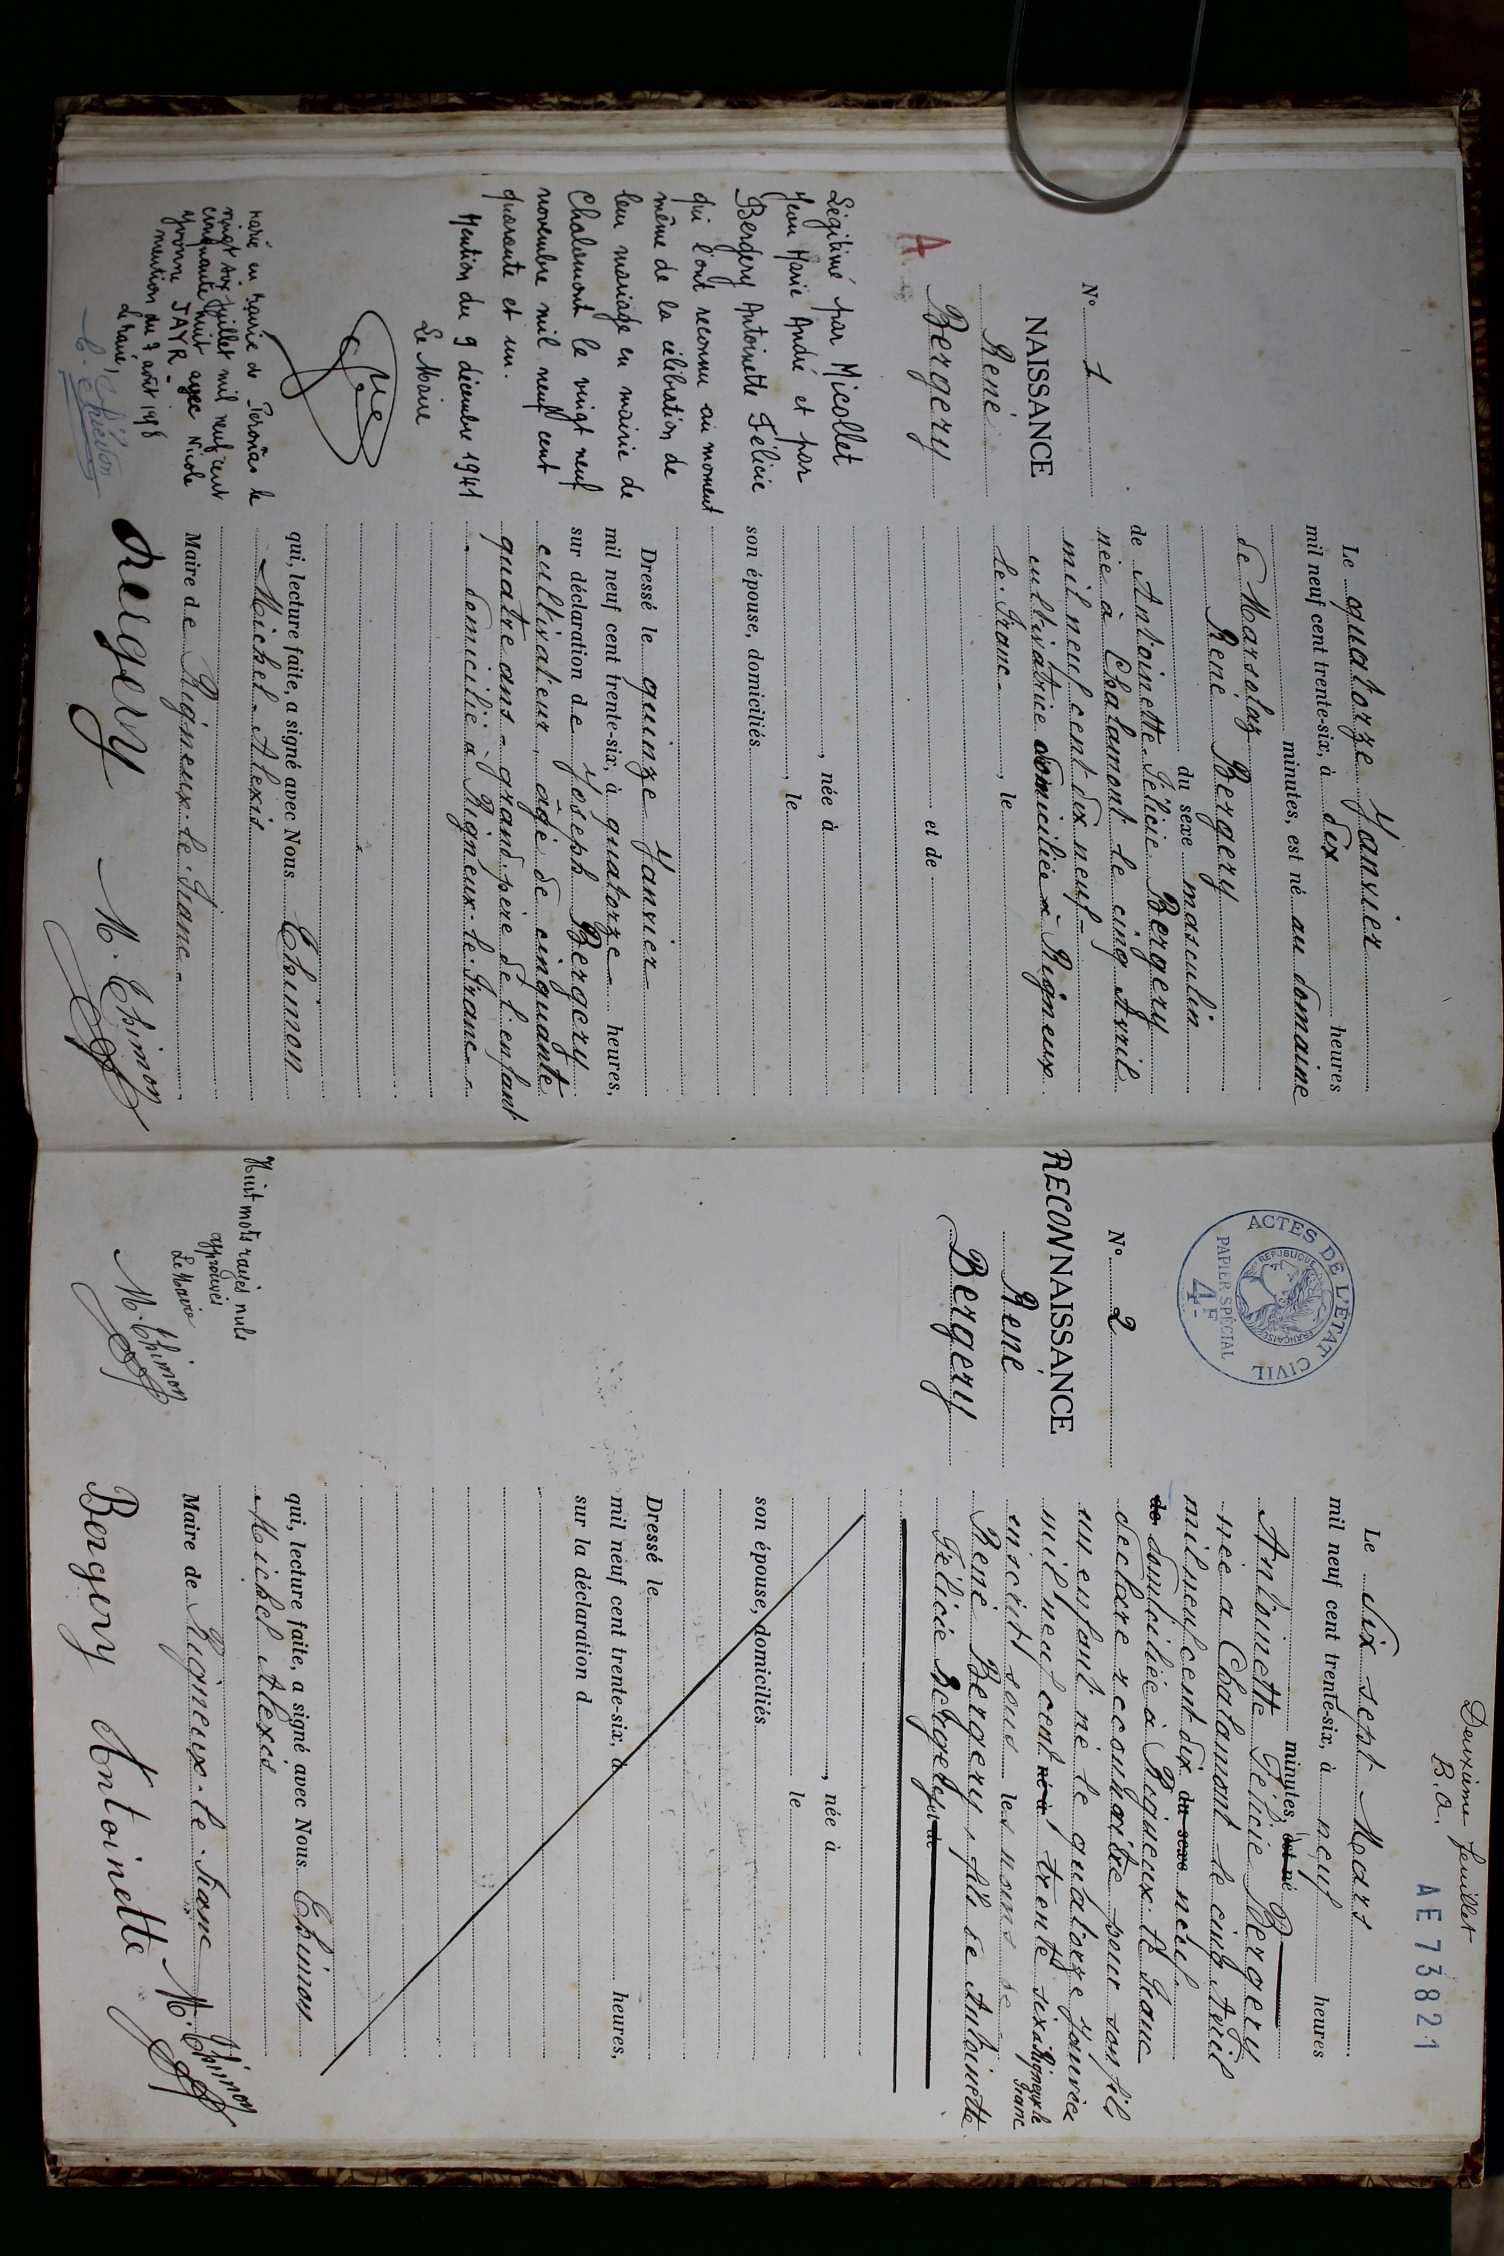 N° 1
NAISSANCE
René
Bergery
A
Légitimé par Micollet
Jean Marie André et par
Bergery Antoinette Félicie
qui l'ont reconnu au moment
même de la célébration de
leur mariage en mairie de
Chalamont le vingt neuf
novembre mil neuf cent
quarante et un.
Mention du 9 décembre 1941
Le Maire
Marié en mairie de Peronnas le
vingt six juillet mil neuf cent
cinquante huit avec Nicole
Yvonne JAYR -
mention du 7 août 1958
Le Maire,
Le quatorze Janvier
mil neuf cent trente-six, à dix heures
minutes, est né au domaine
de Marsolaz
René Bergery
du sexe masculin
de Antoinette Félicie Bergery
née à Chalamont le cinq Avril
mil neuf cent dix neuf -
cultivatrice domiciliée à Rigneux
le Franc - , le
et de
, née à
, le
son épouse, domiciliés
Dressé le quinze Janvier -
mil neuf cent trente-six, à quatorze - heures,
sur déclaration de Joseph Bergery
cultivateur, âgé de cinquante
quatre ans - grand père de l'enfant
- domicilié à Rigneux-le-Franc - -
qui, lecture faite, a signé avec Nous Thimon
Michel Alexis
Maire de Rigneux-le-Franc -
Bergery M. Thimon
Deuxième feuillet
B.A.
AE 73821
ACTES DE L'ÉTAT CIVIL
RÉPUBLIQUE FRANÇAISE
PAPIER SPÉCIAL
4F
N° 2
RECONNAISSANCE
René
Bergery
Huit mots rayés nuls
approuvés
Le Maire
M. Thimon
Le dix sept Mars
mil neuf cent trente-six, à neuf heures
minutes, est né
Antoinette Félicie Bergery
née à Chalamont le cinq Avril
mil neuf cent dix du sexe neuf
de domiciliée à Rigneux-le-Franc
déclare reconnaître pour son fils
un enfant né le quatorze Janvier
mil neuf cent né à trente six à Rigneux le Franc
inscrit sous les noms de
René Bergery, fils de Antoinette
Félicie Bergery et de
, née à
le
son épouse, domiciliés
Dressé le
mil neuf cent trente-six, à heures,
sur la déclaration d
qui, lecture faite, a signé avec Nous Thimon
Michel Alexis
Maire de Rigneux-le-Franc
Bergery Antoinette M. Thimon